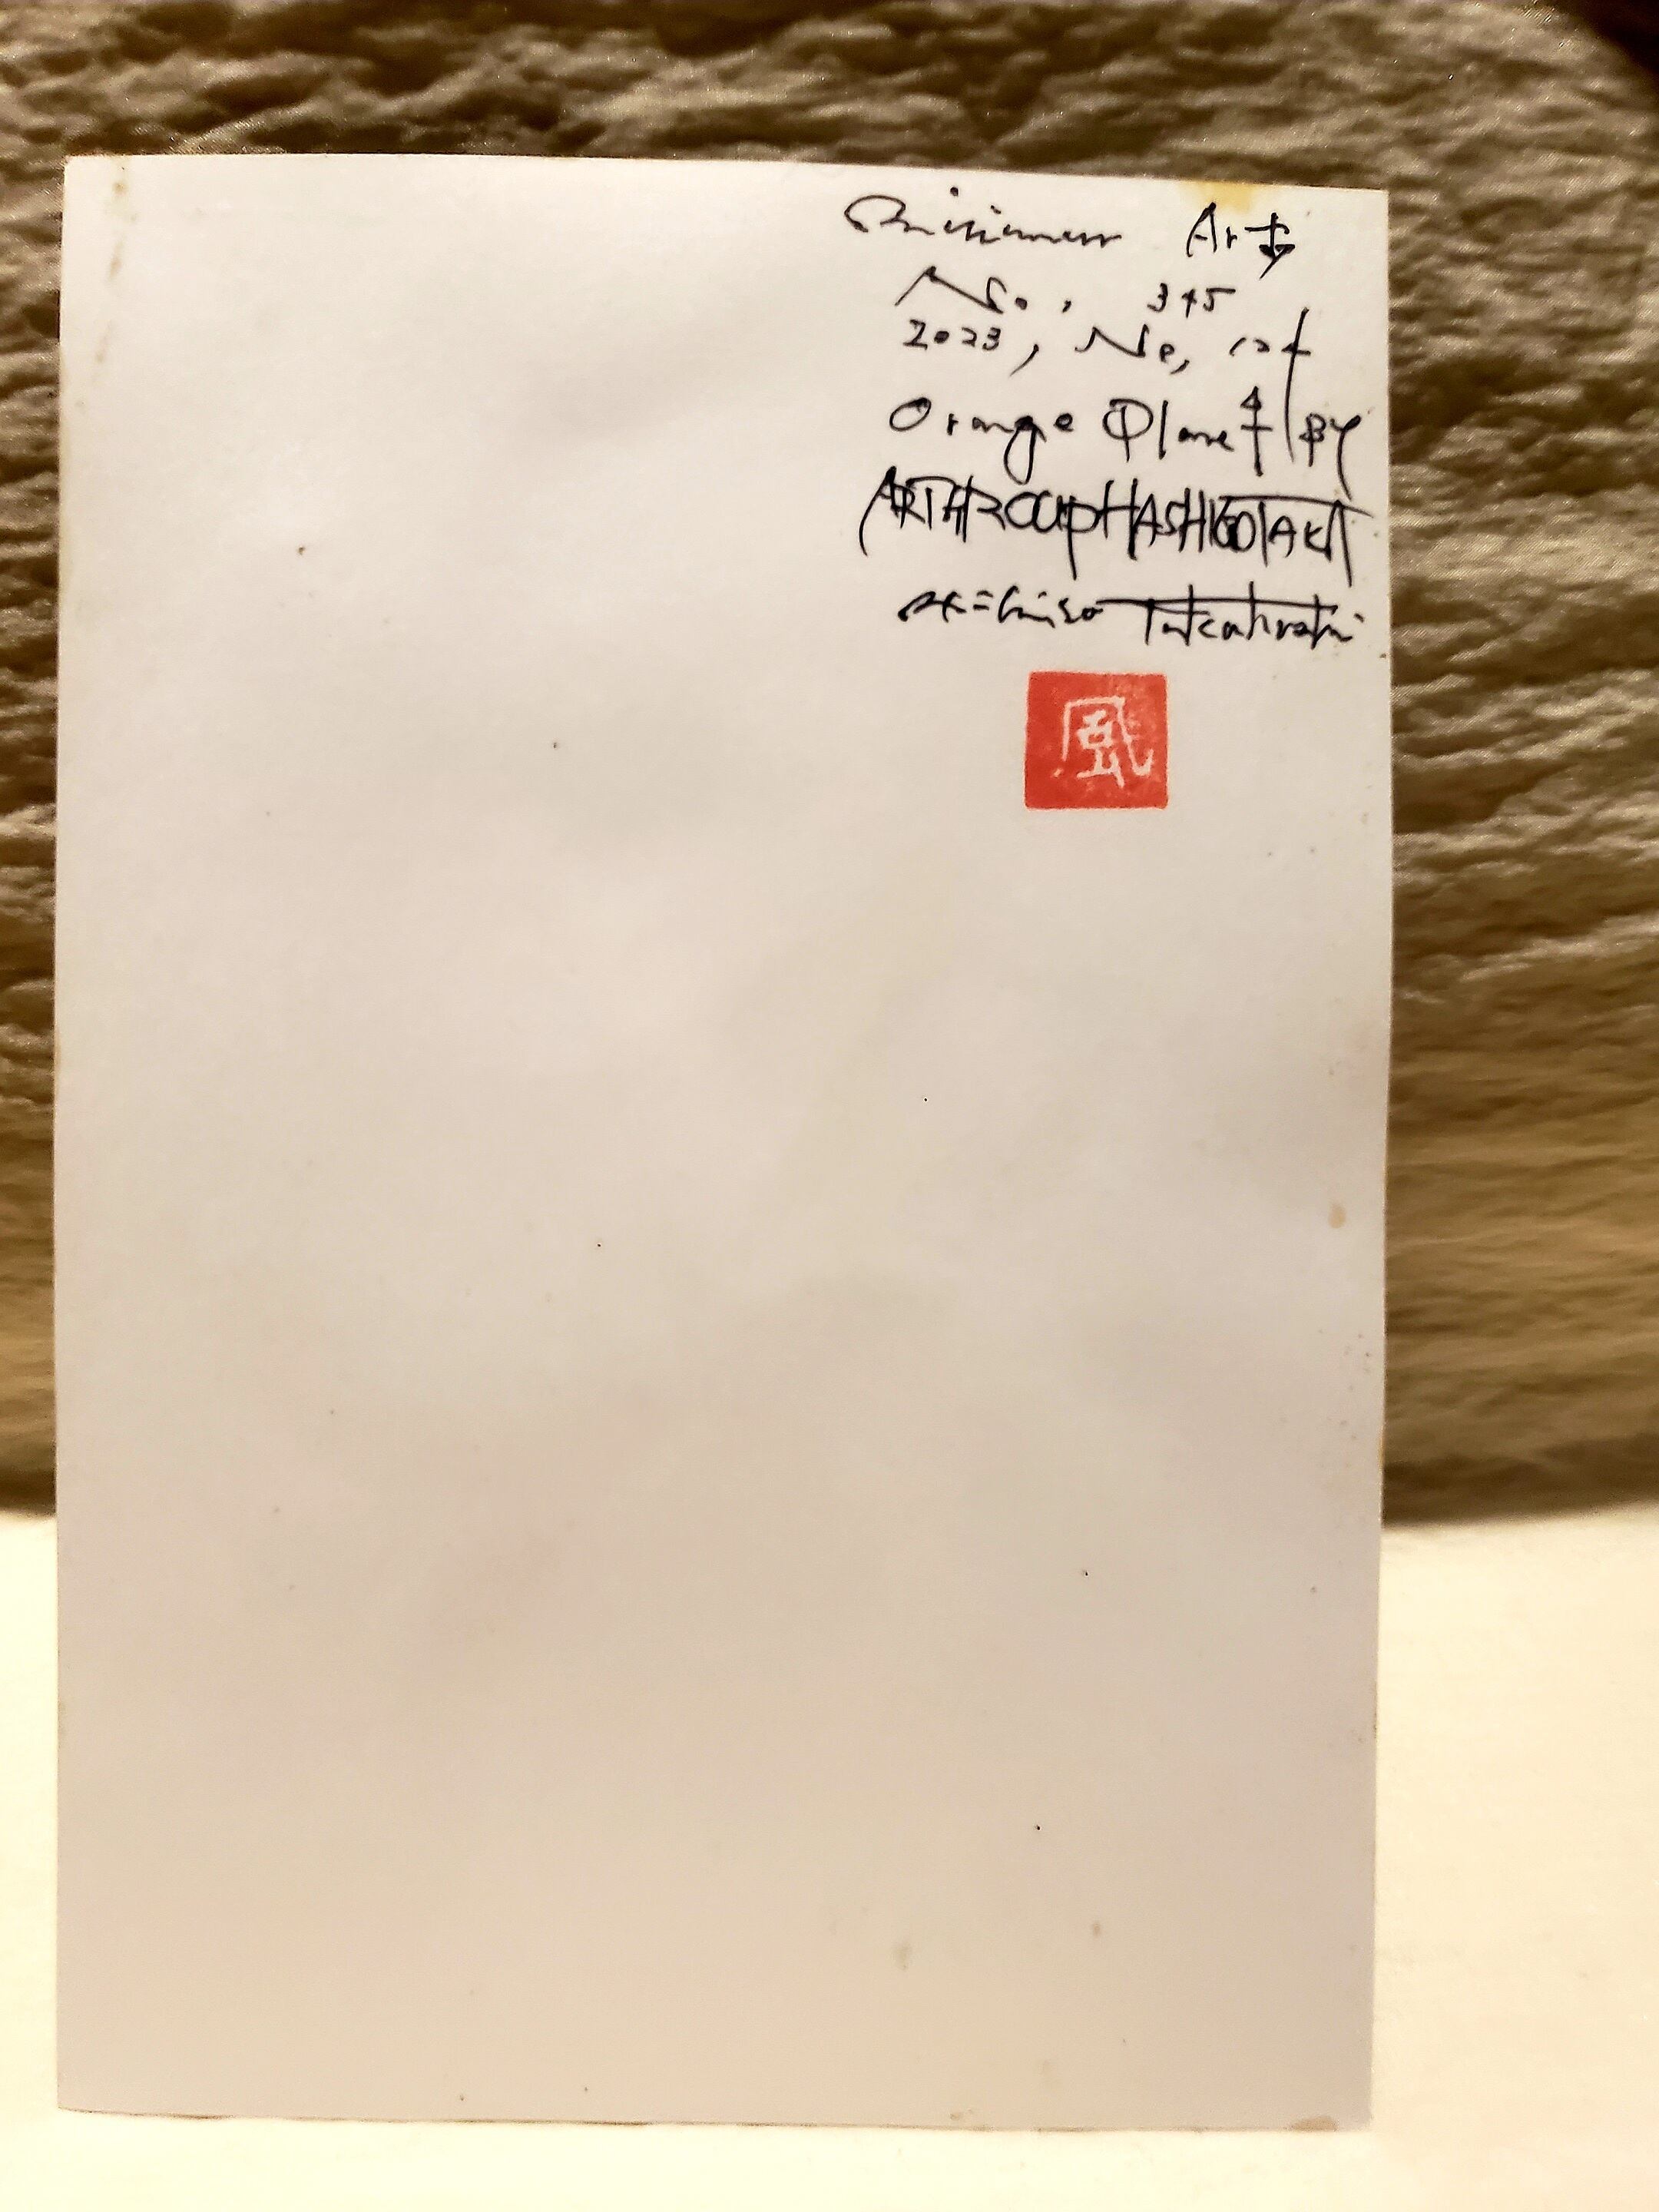 Art
No. 345
2023, No,
Orange Planet By
ARTHROUPHASHIGOTAKA
Akihiro Takahashi
風